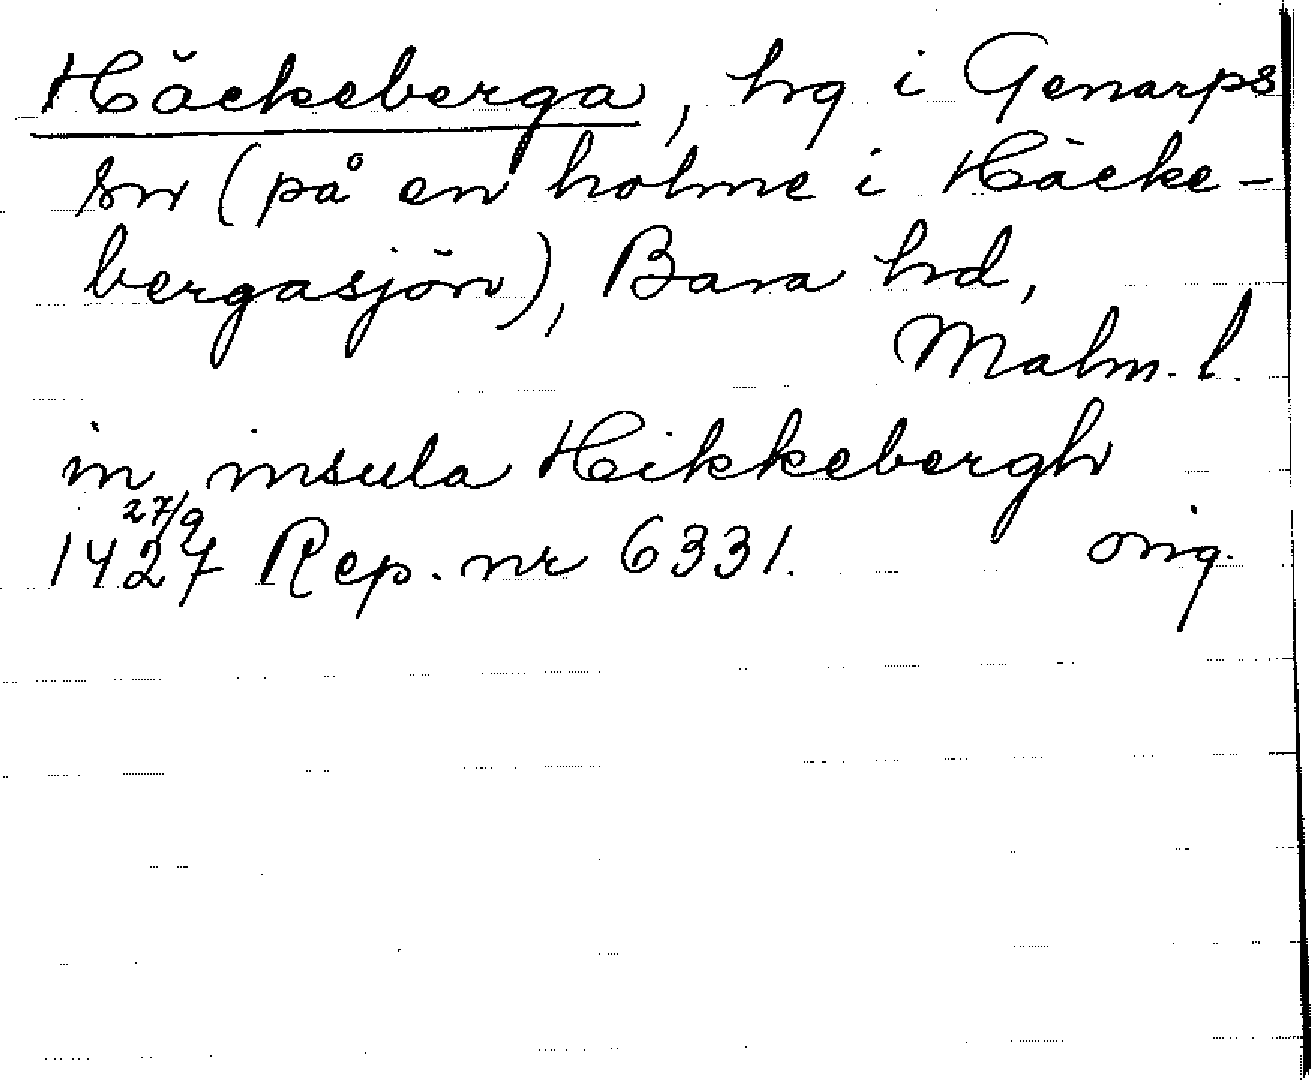 Häckeberga, hg i Genarps
sn (på en holme i Häcke-
bergasjön), Bara hd,
Malm. l.
in insula Hikkebergh
27/9
1427 Rep. nr 6331. orig.